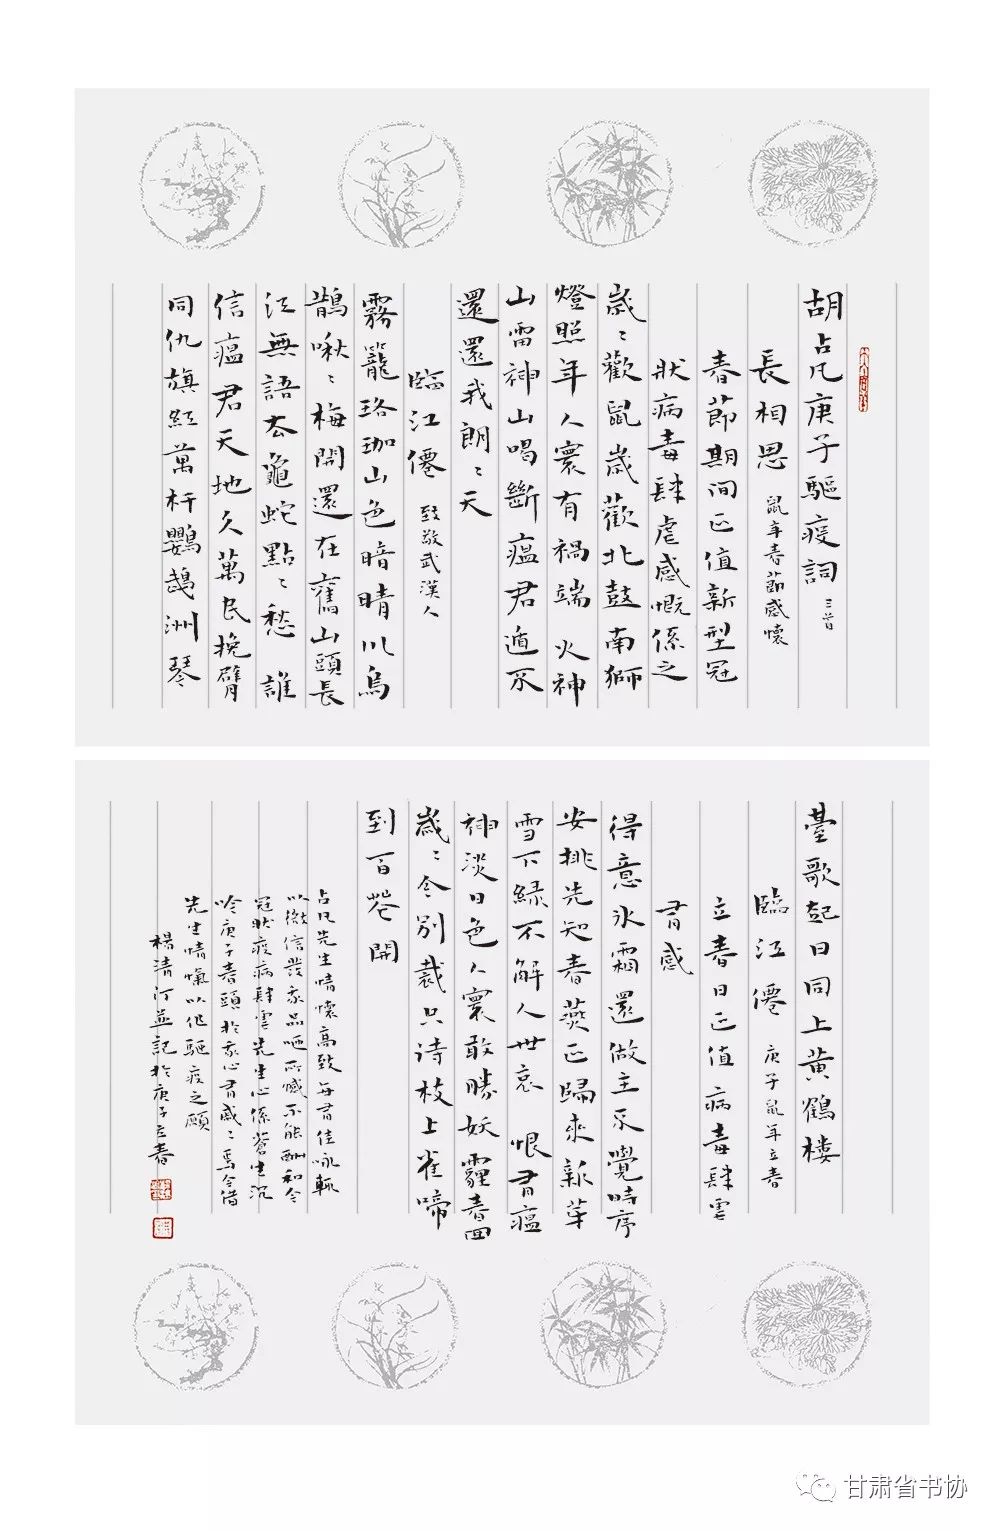 胡占凡庚子驅疫詞 三首
長相思 鼠年春節感懷
春節期间正值新型冠
狀病毒肆虐感慨係之
歲〻歡鼠歲歡北鼓南獅
燈照年人寰有禍端 火神
山雷神山喝斷瘟君遁不
還還我朗〻天
臨江僊 致敬武漢人
霧籠珞珈山色暗晴川烏
鵲啾〻梅開還在舊山頭長
江無語太龜蛇點〻愁 誰
信瘟君天地久萬民挽臂
同仇旗紅萬杆鸚鵡洲琴
臺歌起日同上黄鶴樓
臨江僊 庚子鼠年立春
立春日正值病毒肆雪
有感
得意氷霜還做主不覺時序
安排先知春燕正歸來新芽
雪下緑不解人世哀 恨有瘟
神淡日色人寰敢勝妖霾春回
歲〻今別裁只诗枝上雀啼
到百花開
占凡先生情懷高致每有佳咏輒
以微信發我品哂而慽不能酬和今
冠狀疫病肆雪先生心係蒼生沉
吟庚子春頭於我心有感〻焉今借
先生情氣以作驅疫之願
楊清汀並記於庚子立春
甘肃省书协